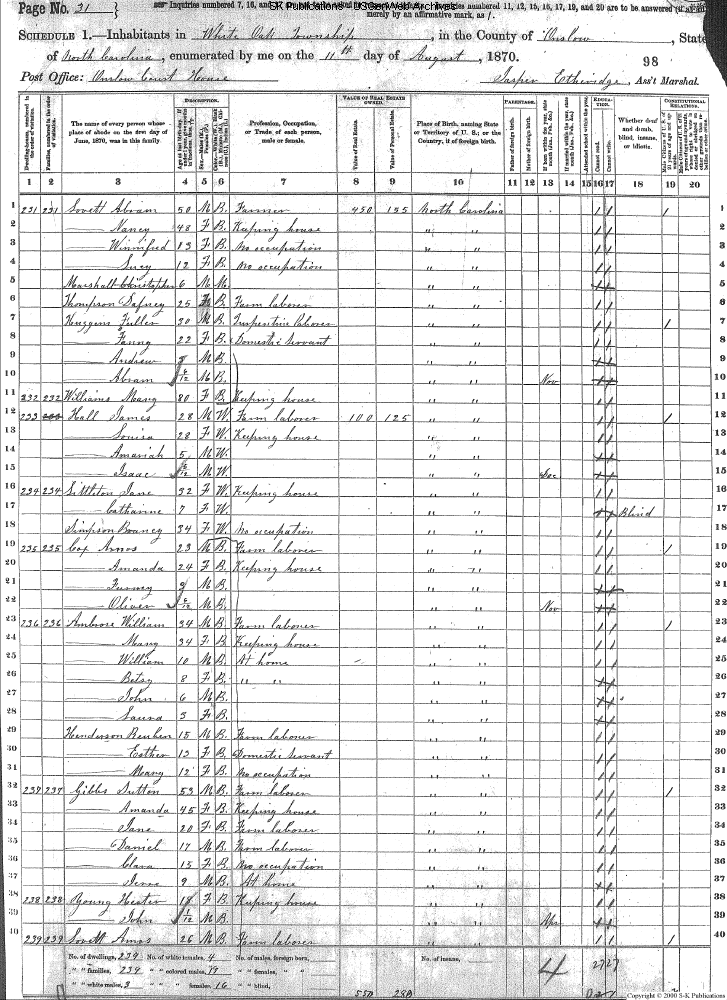 Page No. 31
Inquiries numbered 7, 16, and
SK Publications - USGenWeb Archives
numbered 11, 12, 15, 16, 17, 19, and 20 are to be answered
merely by an affirmative mark, as /.
SCHEDULE 1.—Inhabitants in White Oak Township, in the County of Onslow, State
of North Carolina, enumerated by me on the 11th day of August, 1870.
98
Post Office: Onslow Court House
Jasper Etheridge, Ass't Marshal.
Dwelling-houses, numbered in the order of visitation.
Families, numbered in the order of visitation.
The name of every person whose place of abode on the first day of June, 1870, was in this family.
DESCRIPTION.
Profession, Occupation, or Trade, of each person, male or female.
VALUE OF REAL ESTATE OWNED.
Value of Real Estate.
Value of Personal Estate.
Place of Birth, naming State or Territory of U. S.; or the Country, if of foreign birth.
PARENTAGE.
Father of foreign birth.
Mother of foreign birth.
EDUCATION.
Attended school within the year.
Cannot read.
Cannot write.
Whether deaf and dumb, blind, insane, or idiotic.
CONSTITUTIONAL RELATIONS.
1 2 3 4 5 6 7 8 9 10 11 12 13 14 15 16 17 18 19 20
1 231 231 Lovett Abram 50 M B. Farmer 450 155 North Carolina / / / 1
2 —— Nancy 48 F B. Keeping house " " / / 2
3 —— Winnifred 13 F B. No occupation " " / / 3
4 —— Lucy 12 F B. No occupation " " / / 4
5 Marshall Christopher 6 M M. " " 5
6 Thompson Dafney 25 F B. Farm laborer " " / / 6
7 Huggens Fuller 30 M B. Turpentine laborer " " / / / 7
8 —— Fanny 22 F B. Domestic Servant " " / / 8
9 —— Andrew M B. " " 9
10 —— Abram M B. " " Nov 10
11 232 232 Williams Mary 80 F B. Keeping house " " / / 11
12 233 233 Hall James 28 M W. Farm laborer 100 125 " " / / / 12
13 —— Louisa 28 F W. Keeping house " " / / 13
14 —— Amariah 5 M W. " " 14
15 —— Isaac M W. " " Dec 15
16 234 234 Littleton Jane 32 F W. Keeping house " " / / 16
17 —— Catharine 7 F W. " " Blind 17
18 Simpson 34 F W. No occupation " " / / 18
19 235 235 Cox Amos 23 M B. Farm laborer " " / / / 19
20 —— Amanda 24 F B. Keeping house " " / / 20
21 —— Furney M B. " " 21
22 —— Oliver M B. " " Nov 22
23 236 236 Ambrose William 34 M B. Farm laborer " " / / / 23
24 —— Mary 34 F B. Keeping house " " / / 24
25 —— William 10 M B. At home " " / / 25
26 —— Betsy 8 F B. " " " " 26
27 —— John 6 M B. " " 27
28 —— Laura 3 F B. " " 28
29 Henderson Reuben 15 M B. Farm laborer " " / / 29
30 —— Esther 13 F B. Domestic Servant " " / / 30
31 —— Mary 12 F B. No occupation " " / / 31
32 237 237 Gibbs Sutton 53 M B. Farm laborer " " / / / 32
33 —— Amanda 45 F B. Keeping house " " / / 33
34 —— Jane 20 F B. Farm laborer " " / / 34
35 —— Daniel 17 M B. Farm laborer " " / / 35
36 —— Clara 15 F B. No occupation " " / / 36
37 —— Jesse 9 M B. At home " " 37
38 238 238 Young Hester 18 F B. Keeping house " " / / 38
39 —— John M B. " " Apr 39
40 239 239 Lovett Amos 26 M B. Farm laborer " " / / / 40
No. of dwellings, 239 No. of white females, 4 No. of males, foreign born, No. of insane,
" " families, 239 " " colored males, 19 " " females, " "
" " white males, 3 " " females, 16 " " blind,
550 280
4
2727
Copyright © 2000 S-K Publications